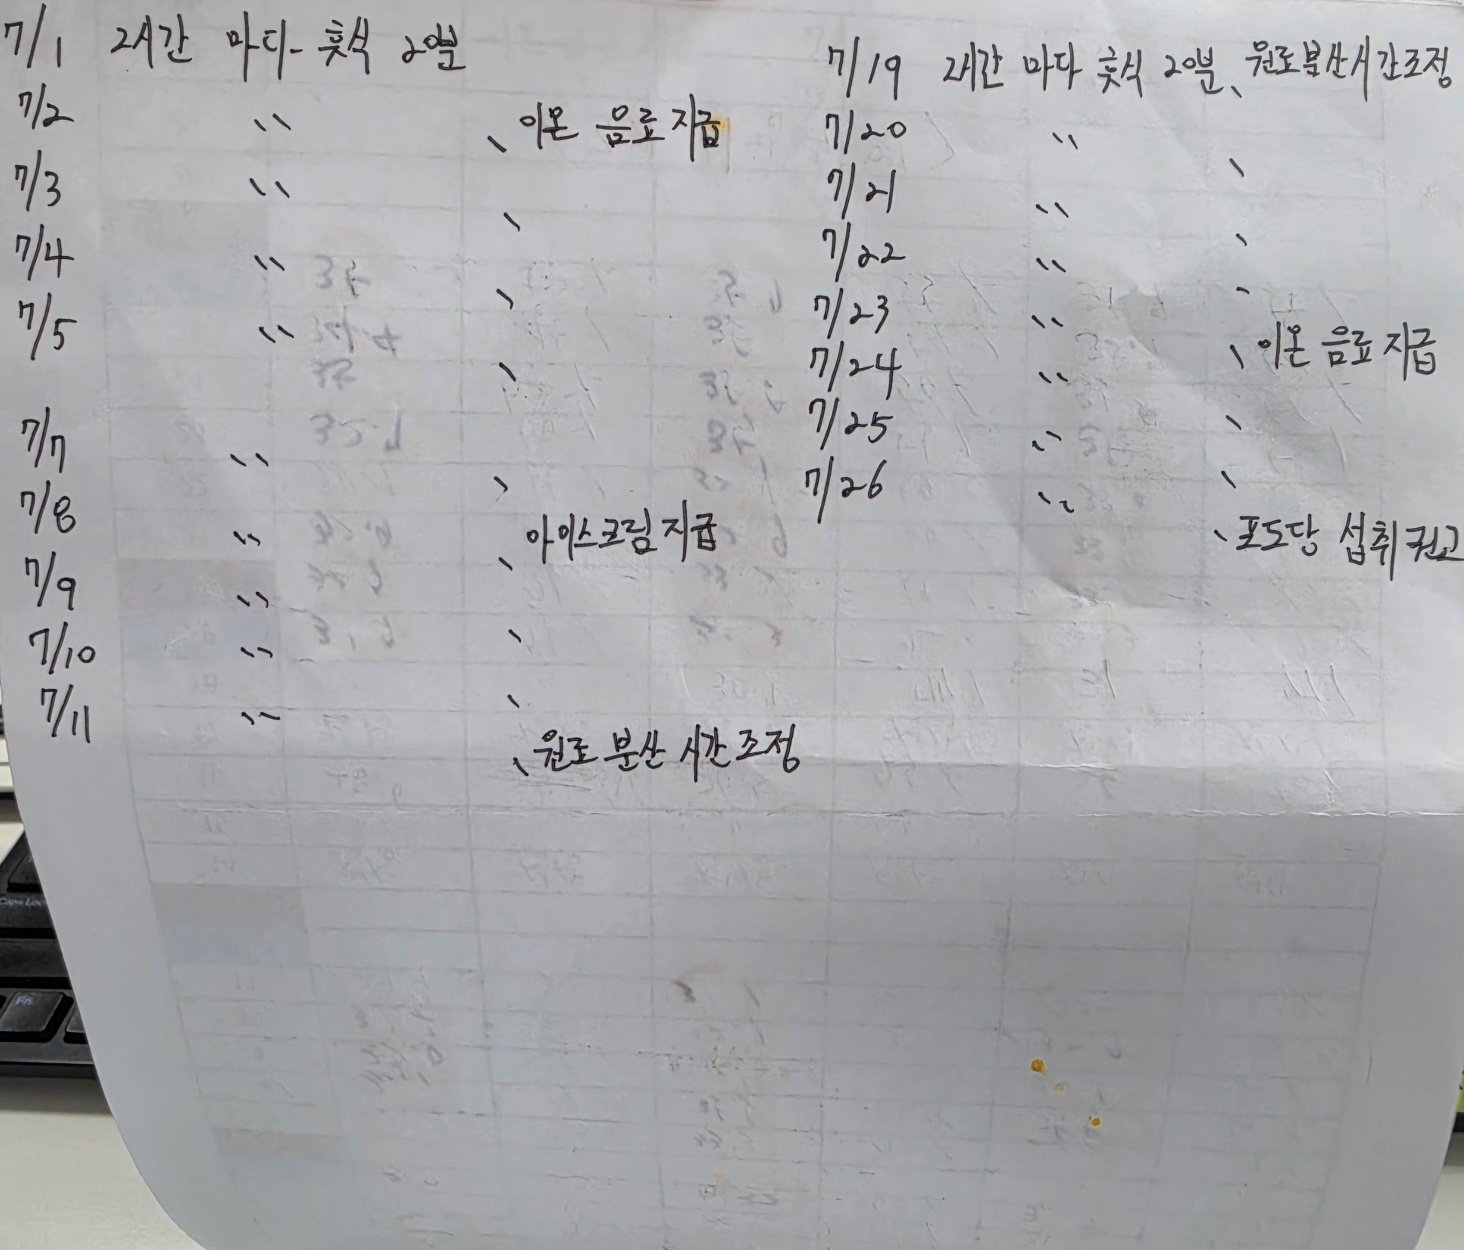 7/1 2시간 마다 휴식 20분
7/2 〃 、이온 음료 지급
7/3 〃 、
7/4 〃 、
7/5 〃 、
7/7 〃 、
7/8 〃 、아이스크림 지급
7/9 〃 、
7/10 〃 、
7/11 〃 、원로 분산 시간 조정
7/19 2시간 마다 휴식 20분、원로 분산 시간 조정
7/20 〃 、
7/21 〃 、
7/22 〃 、
7/23 〃 、이온 음료 지급
7/24 〃 、
7/25 〃 、
7/26 〃 、포도당 섭취 권고